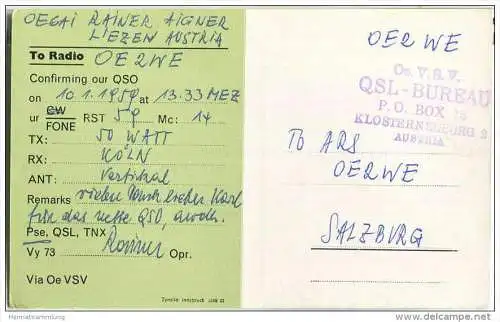 OE6AI RAINER AIGNER
LIEZEN AUSTRIA
To Radio OE2WE
Confirming our QSO
on 10.1.1959 at 13.33 MEZ
ur CW
FONE RST 59 Mc: 14
TX: 50 WATT
RX: KÖLN
ANT: Vertikal
Remarks vielen Dank lieber Karl
für das nette QSO, 
Pse, QSL, TNX
Vy 73 Rainer Opr.
Via Oe VSV
OE2WE
Oe. V. S. V.
QSL-BUREAU
P. O. BOX
KLOSTERNEUBURG 2
AUSTRIA
To ARS
OE2WE
SALZBURG